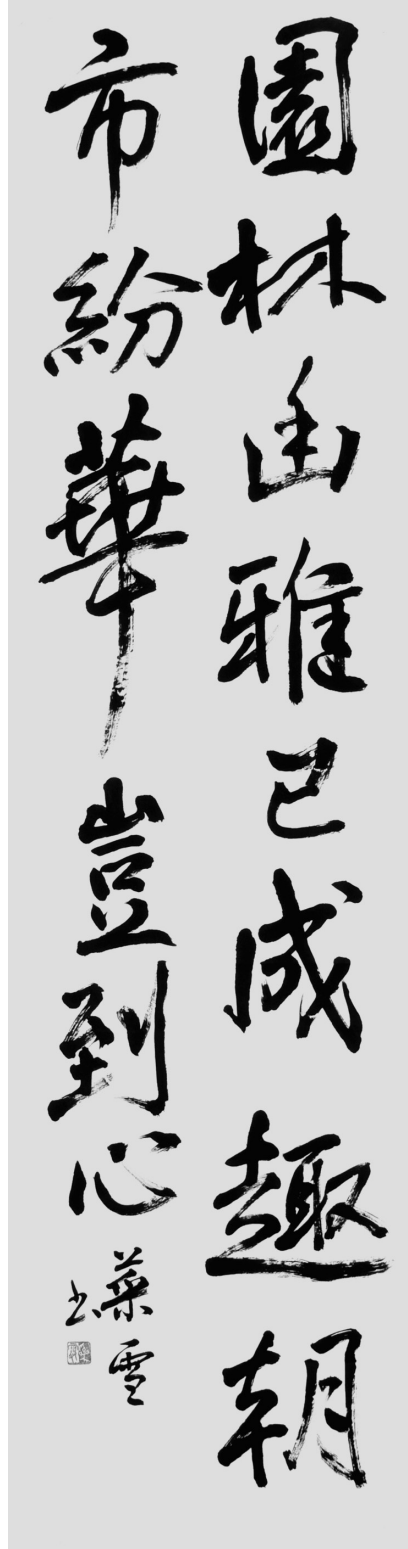 園林幽雅已成趣朝
市紛華豈到心
蘂雪
書